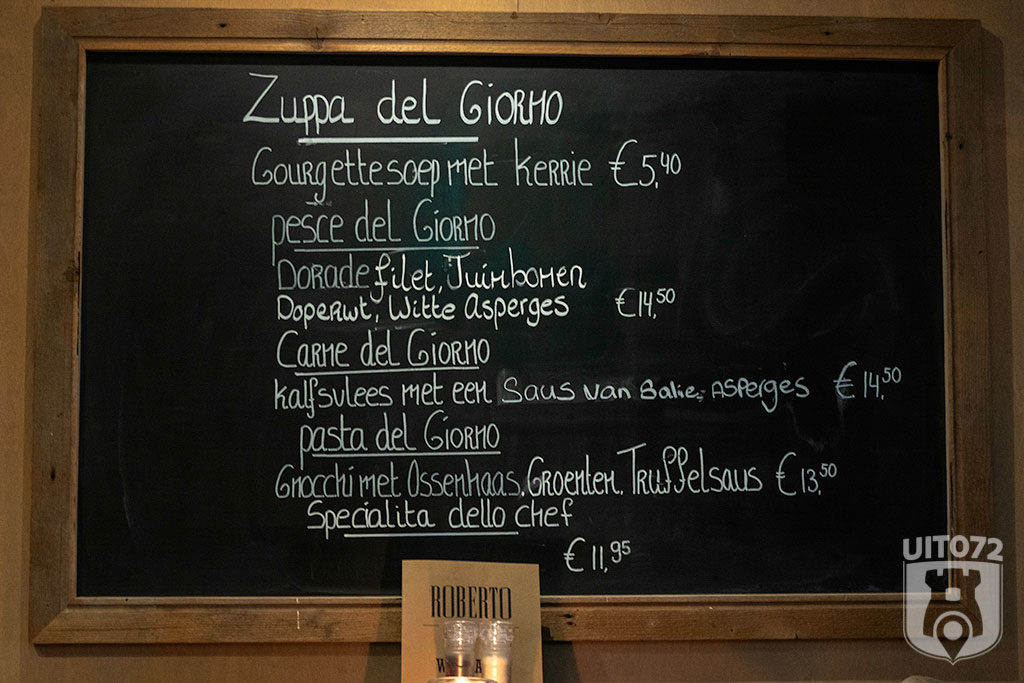 Zuppa del Giorno
Courgettesoep met kerrie €5,40
pesce del Giorno
Dorade filet, Tuinbonen
Doperwt, Witte Asperges €14,50
Carne del Giorno
kalfsvlees met een Saus van Salie, Asperges €14,50
pasta del Giorno
Gnocchi met Ossenhaas, Groenten, Truffelsaus €13,50
Specialita dello chef
€11,95
ROBERTO
W A
UIT072